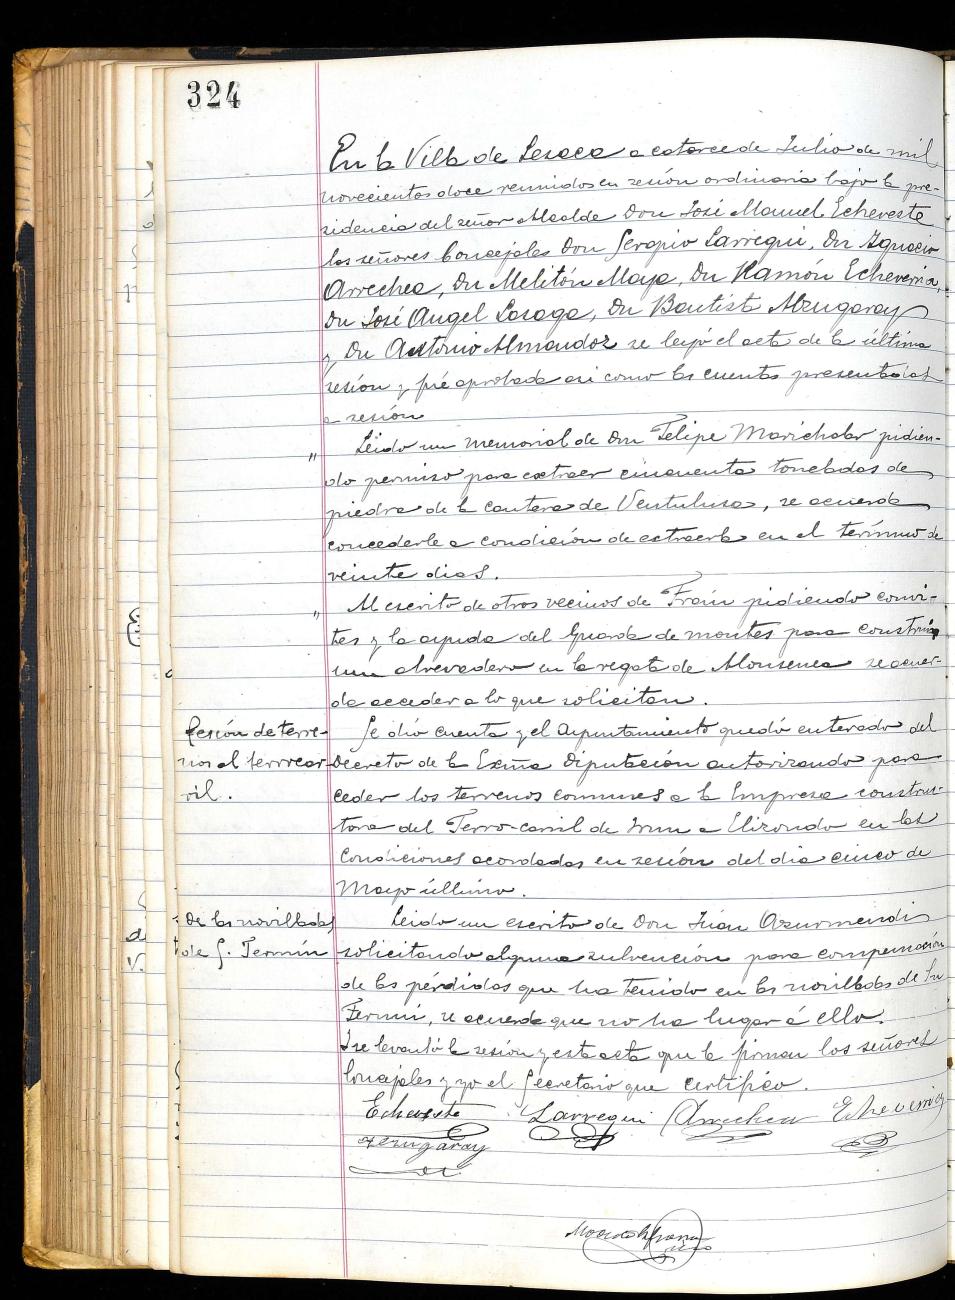 324
En la Villa de Lesaca a catorce de Julio de mil
novecientos doce reunidos en sesión ordinaria bajo la pre-
sidencia del señor Alcalde Don José Manuel Echeveste
los señores Concejales Don Sergio Larregui, Dn Ignacio
Arrechea, Dn Melitón Maya, Dn Ramón Echeverria,
Dn José Angel Lasaga, Dn Bautista Alzugaray
y Dn Antonio Almandoz se leyó el acta de la última
sesión y fué aprobada asi como las cuentas presentadas
a sesión
" Leido un memorial de Don Felipe Marichalar pidien-
do permiso para extraer cincuenta toneladas de
piedra de la cantera de Ventulusa, se acuerda
concederle a condición de extraerla en el término de
veinte dias.
" Al escrito de otros vecinos de Frain pidiendo convi-
tes y la ayuda del Guarda de montes para construir
un abrevadero en la regata de Alonsenea se acuer-
da acceder a lo que solicitan.
Cesión de terre-
nos al ferrocar-
ril.
Se dió cuenta y el Ayuntamiento quedó enterado del
Decreto de la Exma Diputación autorizando para
ceder los terrenos comunes a la Empresa construc-
tora del Ferro-carril de Irun a Elizondo en las
condiciones acordadas en sesión del dia cinco de
Mayo último.
De las novilladas
de S. Fermín
Leido un escrito de Don Juan Azurmendi
solicitando alguna subvención para compensación
de las pérdidas que ha tenido en las novilladas de Sn
Fermin, se acuerda que no ha lugar á ello.
Y se levantó la sesión y esta acta que la firman los señores
Concejales y yo el Secretario que certifico.
Echeveste Larregui Arrechea Echeverria
Alzugaray